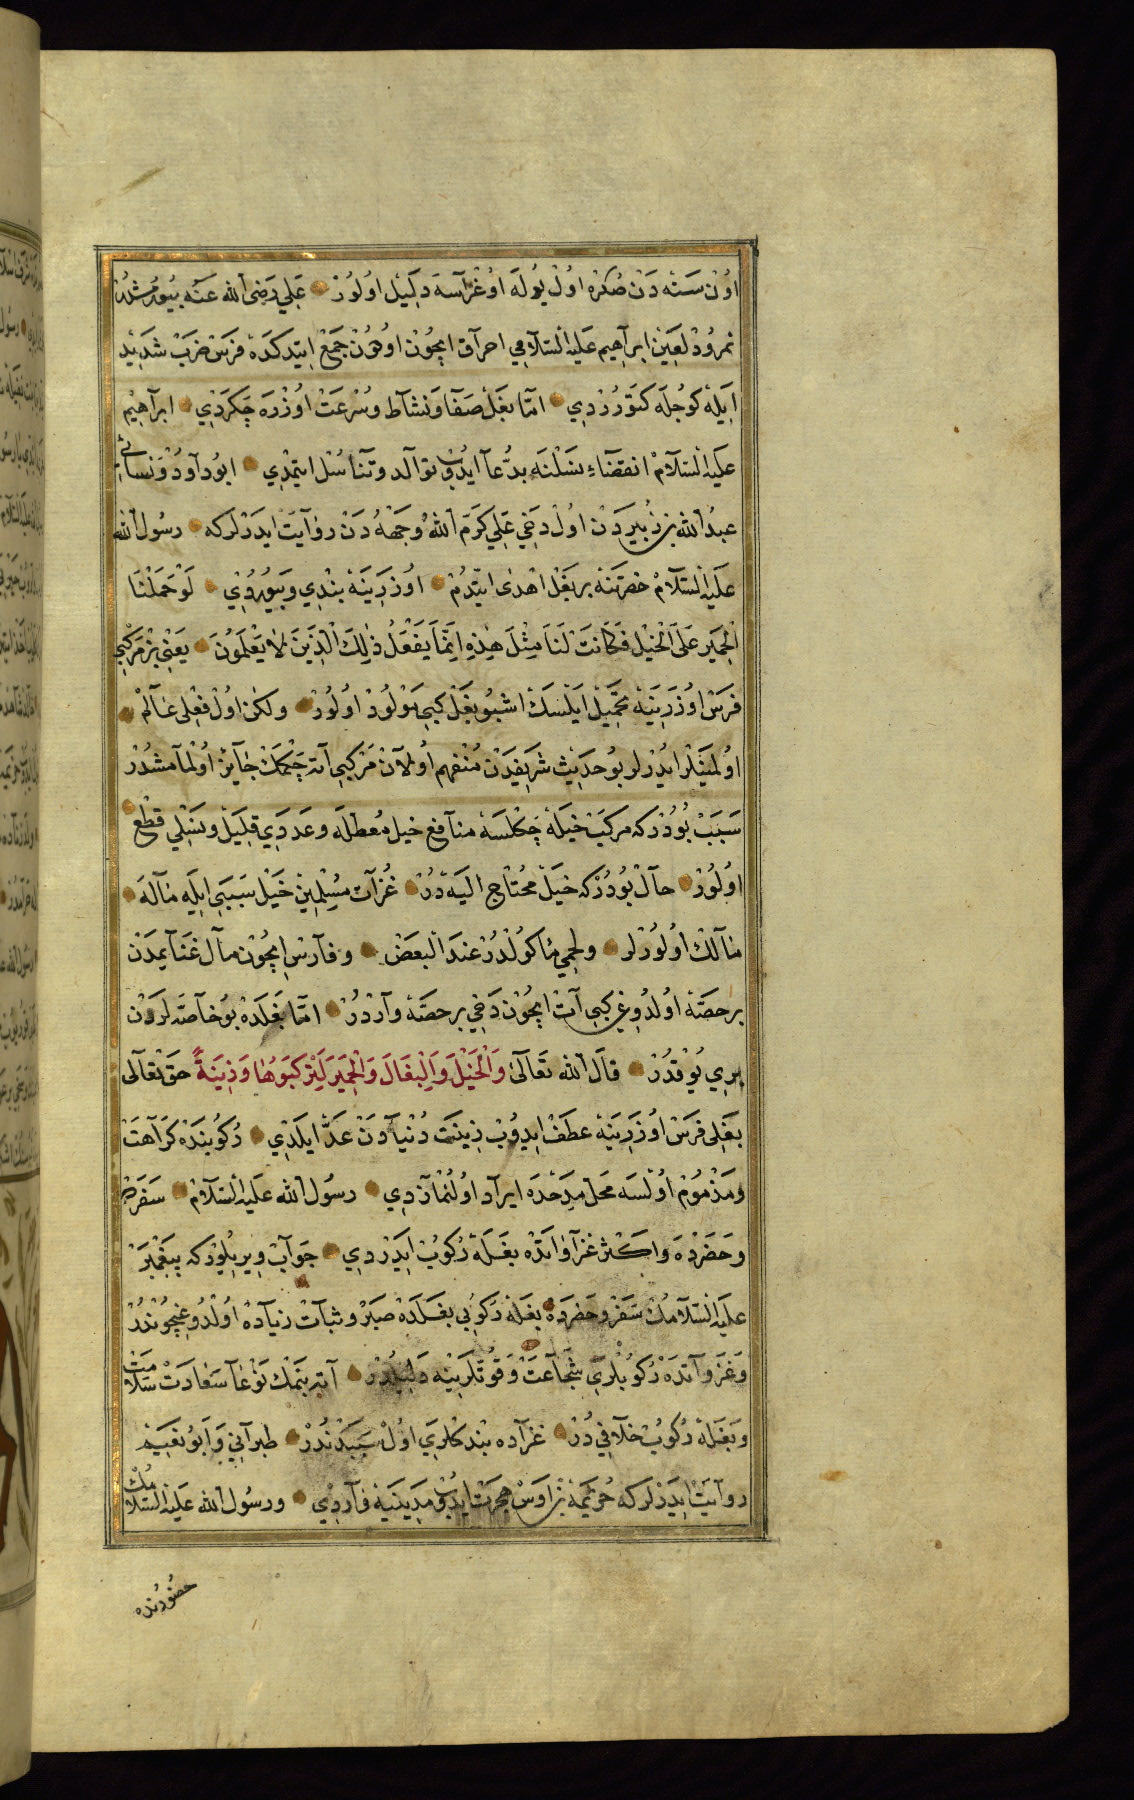 اون سنه دن صكره اول يوله اوغراسه دليل اولور علي رضى الله عنه بيورمشدر
نمرود لعين ابراهيم عليه السلامي احراق ايچون اودون جمع ايتدكده فرس ضرب شديد
ايله كوجله كتورردي اما بغل صفا و نشاط و سرعت اوزره چكردي ابراهيم
عليه السلام انقضاء نسلنه بددعا ايدوب توالد و تناسل ايتمدي ابو داود و نسائي
عبد الله بن زبيردن اول دخي علي كرم الله وجهه دن روايت ايدرلركه رسول الله
عليه السلام حضرتنه بر بغل اهدى ايتدم اوزرينه بندي و بيوردي لَوْ حَمَلْنَا
الْحَمِيرَ عَلَى الْخَيْلِ فَكَانَتْ لَنَا مِثْلَ هٰذِهِ اِنَّمَا يَفْعَلُ ذٰلِكَ الَّذِينَ لَا يَعْلَمُونَ يعني بز مركبي
فرس اوزرينه تحميل ايلسك اشبو بغل كبي مولود اولور ولكن اول فعلى عالم
اولمينلر ايدرلر بو حديث شريفدن منفهم اولان مركبي آته چكمك جائز اولمامشدر
سبب بودركه مركب خيله چكلسه منافع خيل معطله و عددي قليل و نسلي قطع
اولور حال بودركه خيل محتاج اليه در غزات مسلمين خيل سببي ايله ماله
مالك اولورلر و لحمي مأكولدر عند البعض و فارس ايچون مال غنايمدن
بر حصه اولدوغي كبي آت ايچون دخي بر حصه واردر اما بغلده بو خاصه لردن
بري يوقدر قال الله تعالى وَالْخَيْلَ وَالْبِغَالَ وَالْحَمِيرَ لِتَرْكَبُوهَا وَزِينَةً حق تعالى
بغلى فرس اوزرينه عطف ايدوب زينت دنيادن عد ايلدي ركوبنده كراهت
و مذموم اولسه محل مدحده ايراد اولنمازدي رسول الله عليه السلام سفرده
و حضرده و اكثر غزواتده بغله ركوب ايدردي جواب ويريلوركه پيغمبر
عليه السلامك سفر و حضرده بغله ركوبي بغلده صبر و ثبات زياده اولدوغيچوندر
و غزواتده ركوبلري شجاعت و قوتلرينه دليلدر آته بنمك نوعا سعادت سلامت
و بغله ركوب خلافي در غزاده بندكلري اول سببدندر طبراني و ابو نعيم
روايت ايدرلركه خزيمه بن اوس هجرت ايدوب مدينيه واردي و رسول الله عليه السلامك
حضورنده